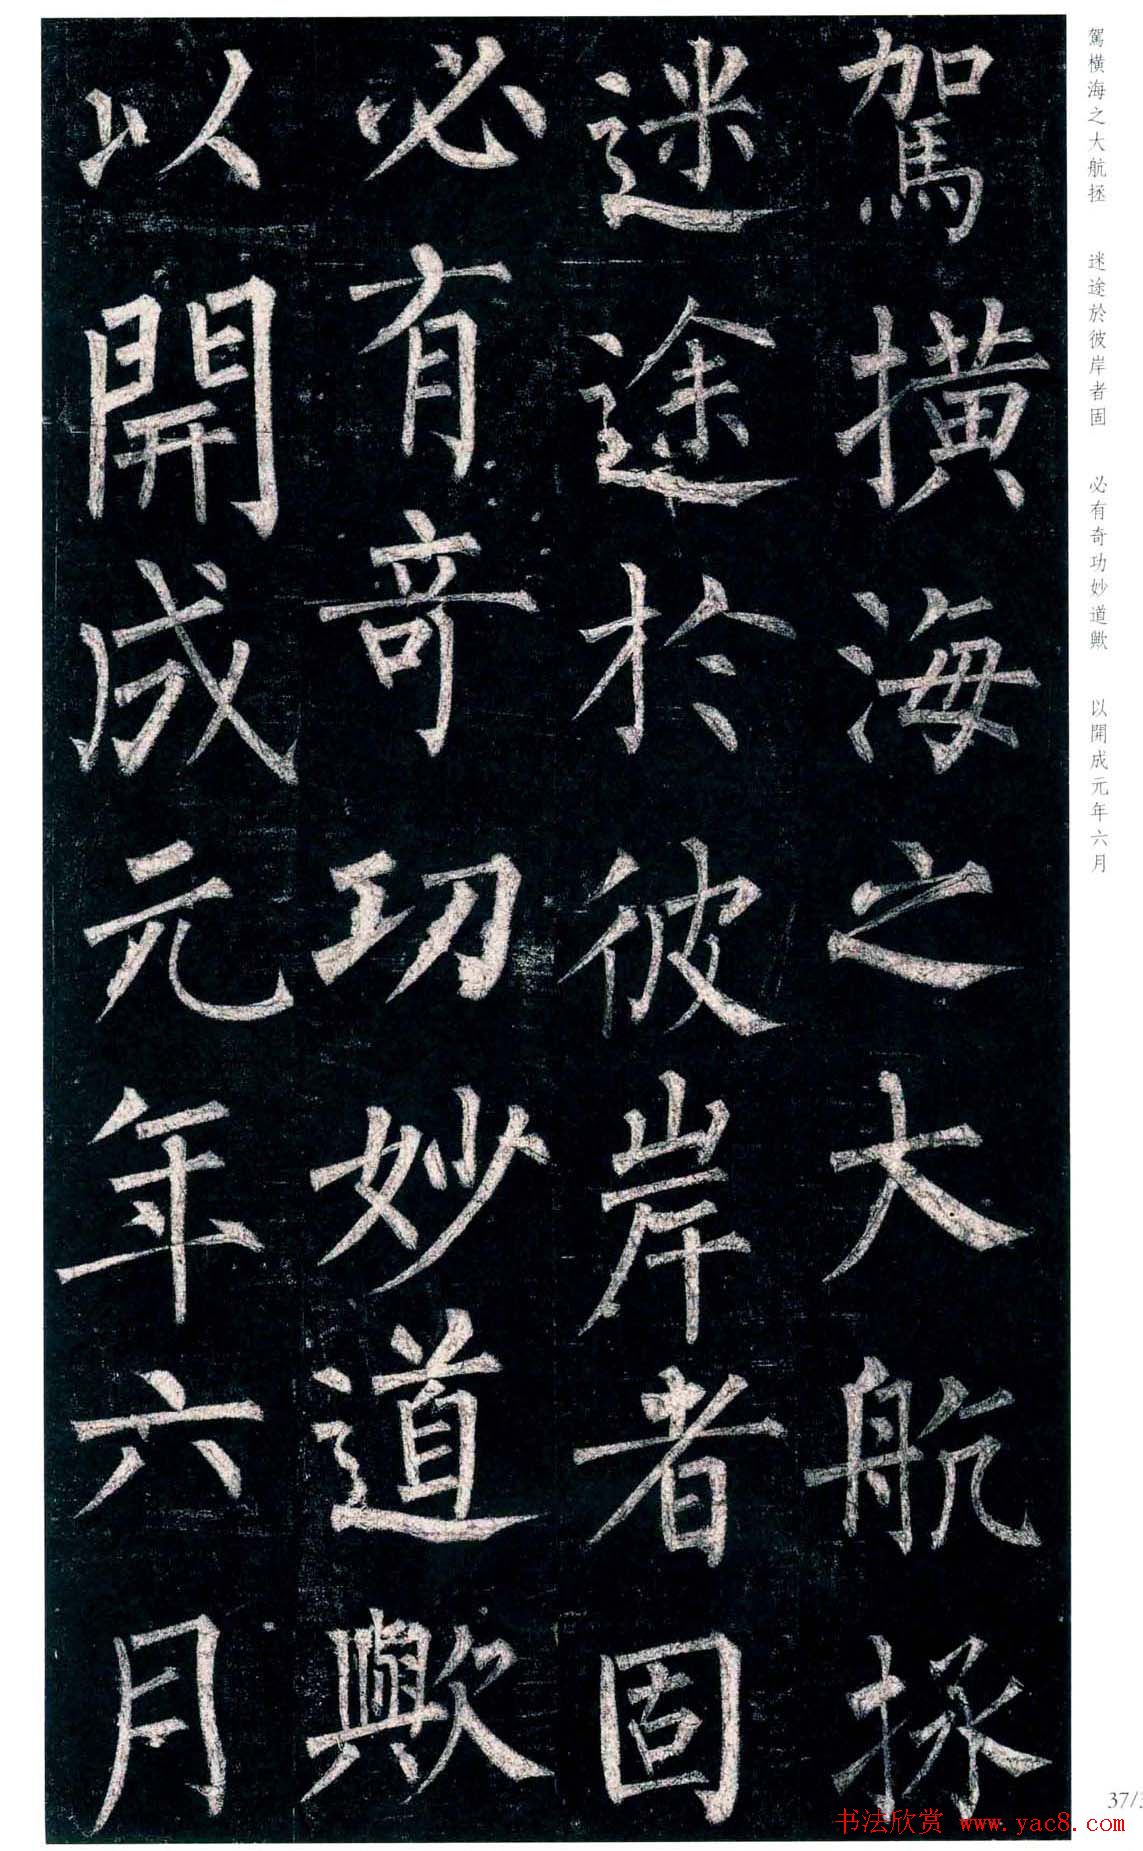 駕橫海之大航拯
迷途於彼岸者固
必有奇功妙道歟
以開成元年六月
駕橫海之大航拯 迷途於彼岸者固 必有奇功妙道歟 以開成元年六月
37/3
书法欣赏 www.yac8.com